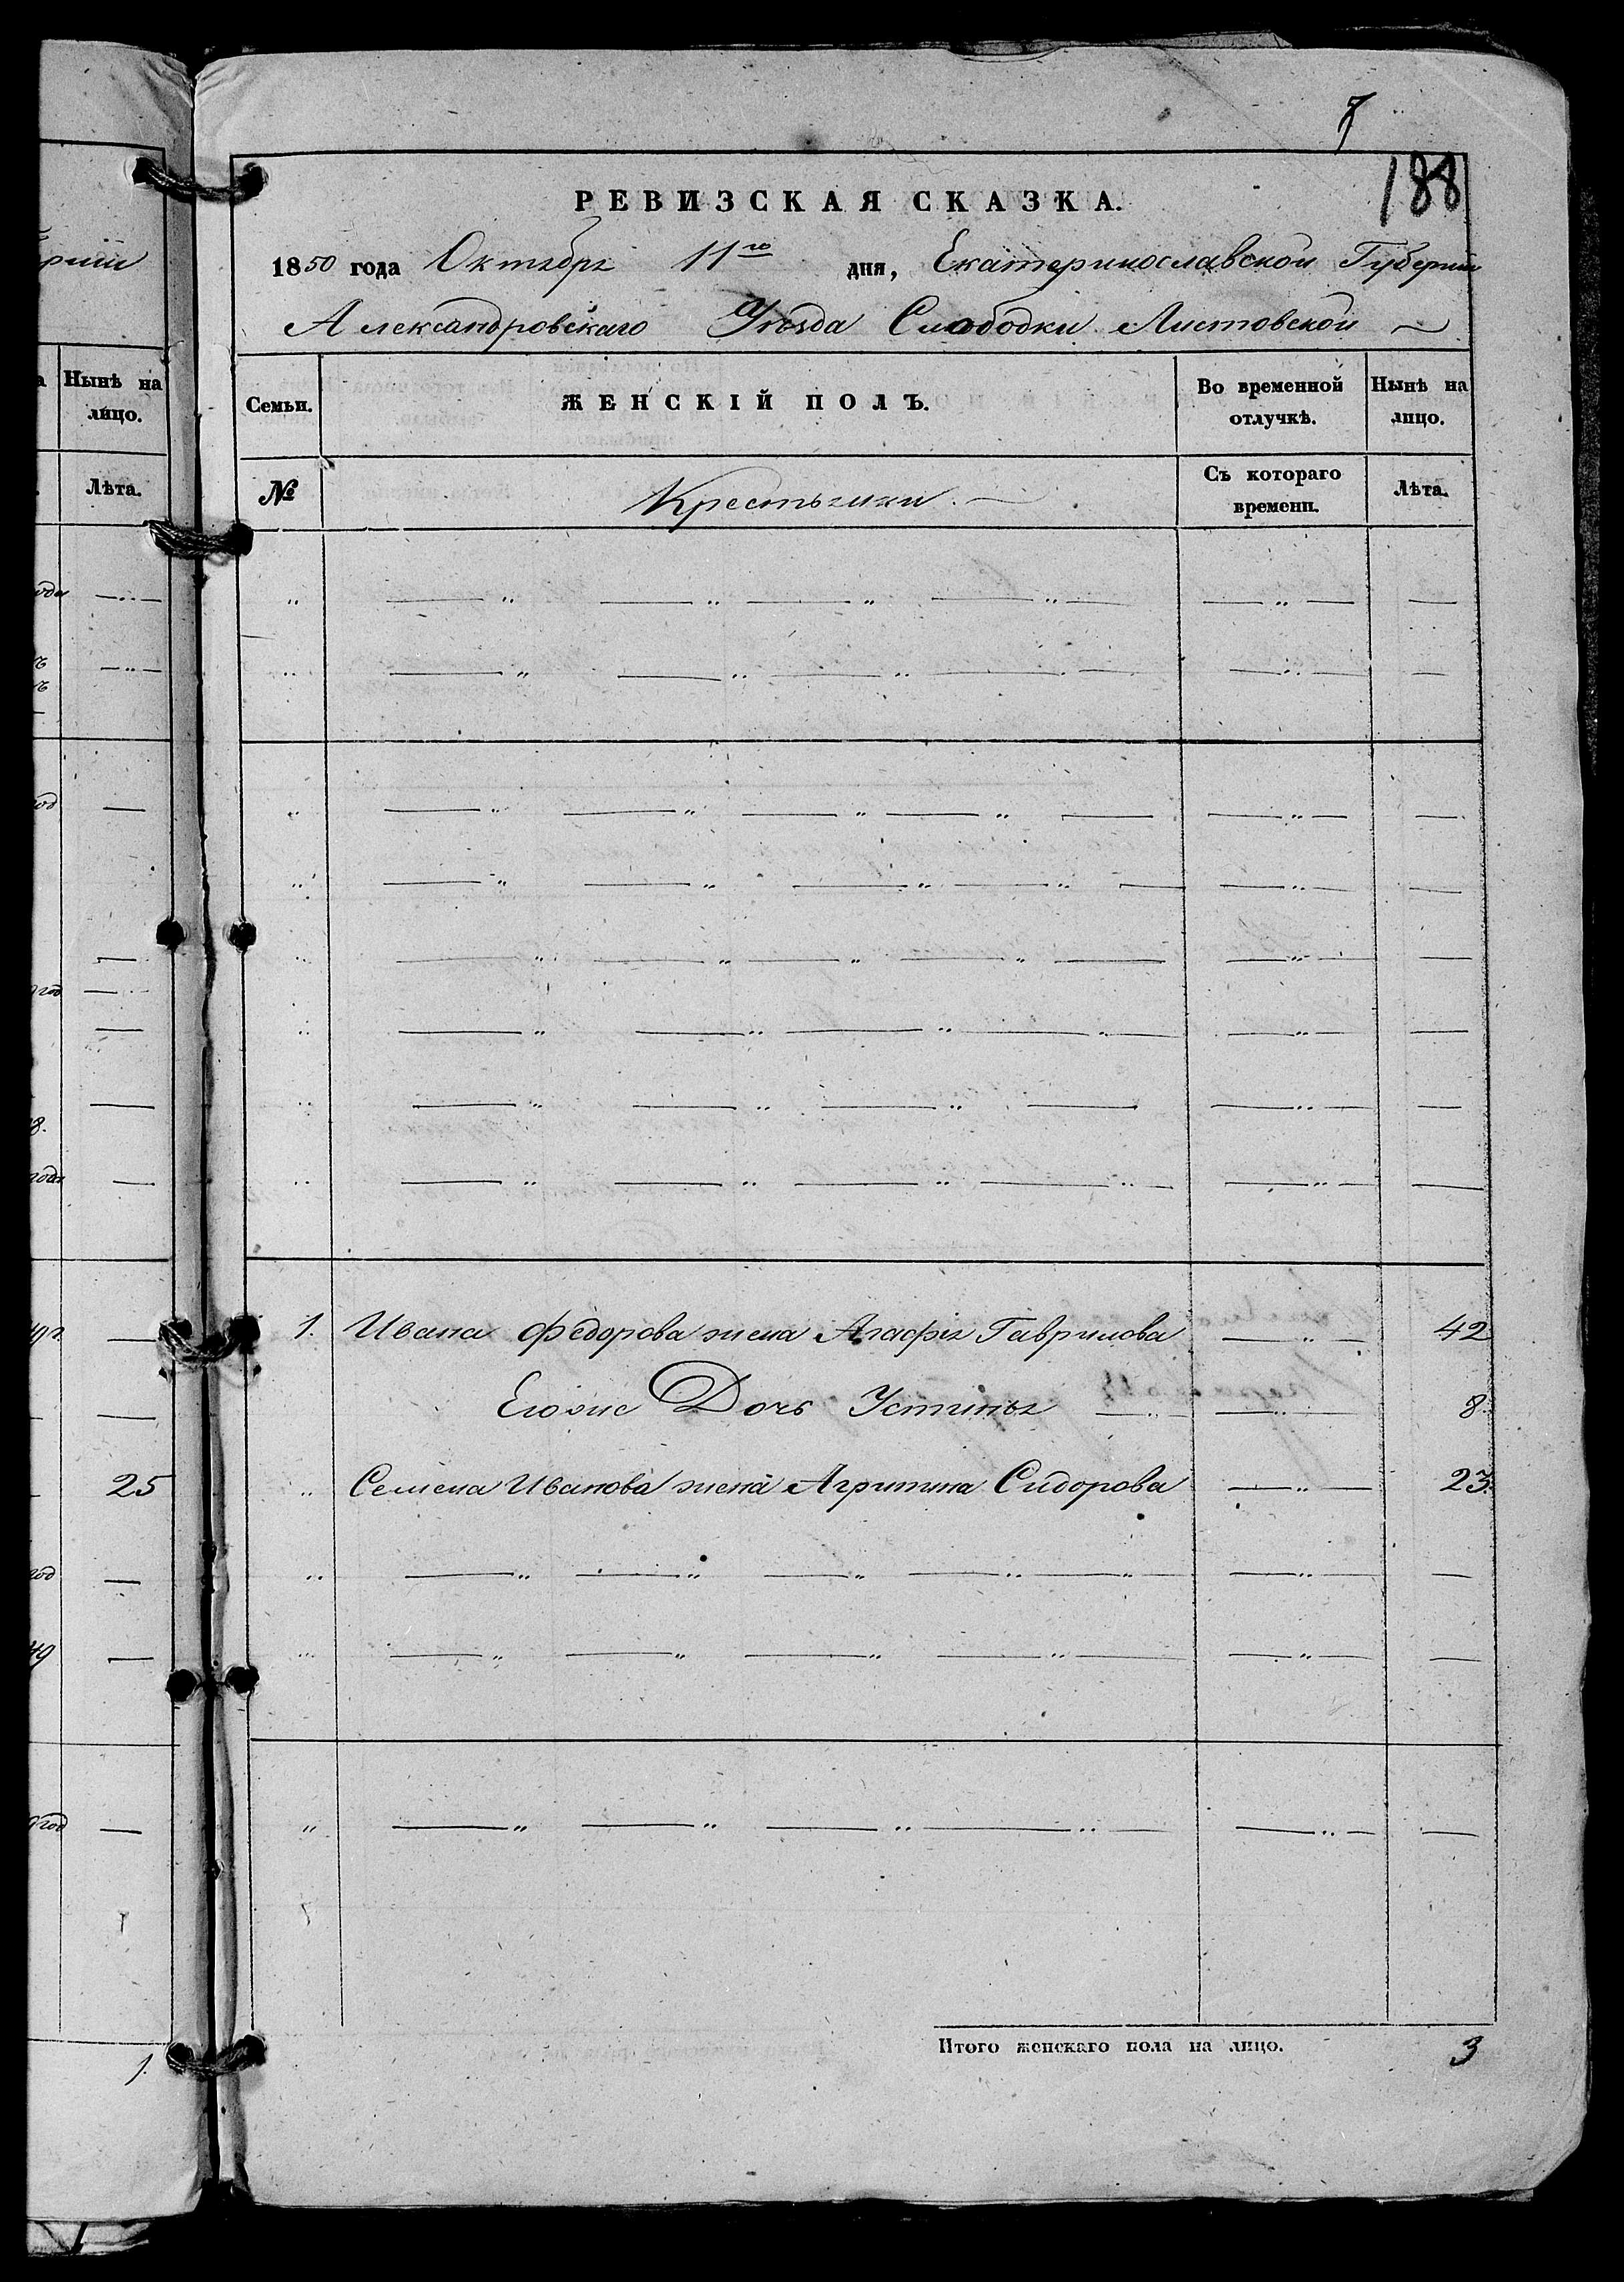 7
188
РЕВИЗСКАЯ СКАЗКА.
1850 года Октября 11го дня, Екатеринославской Губернии
Александровскаго Уѣзда Слободки Листовской
Нынѣ на лицо.
Семьи.
ЖЕНСКІЙ ПОЛЪ.
Во временной отлучкѣ.
Нынѣ на лицо.
Лѣта.
№
Крестьянки
Съ котораго времени.
Лѣта.
1. Ивана Федорова жена Агафія Гаврилова 42
Егоже Дочь Устинья 8
25
Семена Иванова жена Агрипина Сидорова 23
Итого женскаго пола на лицо. 3
1.